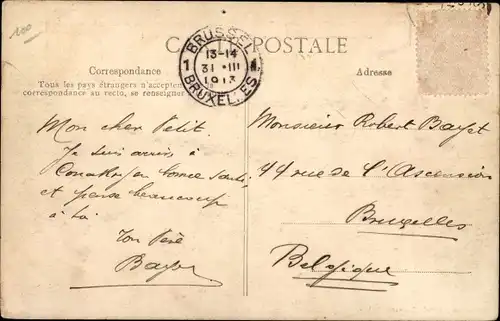 100
CARTE POSTALE
BRUSSEL
1 13-14 1
31 III
1913
BRUXELLES
Correspondance
Adresse
Tous les pays étrangers n'acceptent
correspondance au recto, se renseigner
Mon cher Petit
Je suis arrivé à
Conakry en bonne santé
et pense beaucoup
à toi
Ton Père
Bayet
Monsieur Robert Bayet
44 rue de l'Ascension
Bruxelles
Belgique